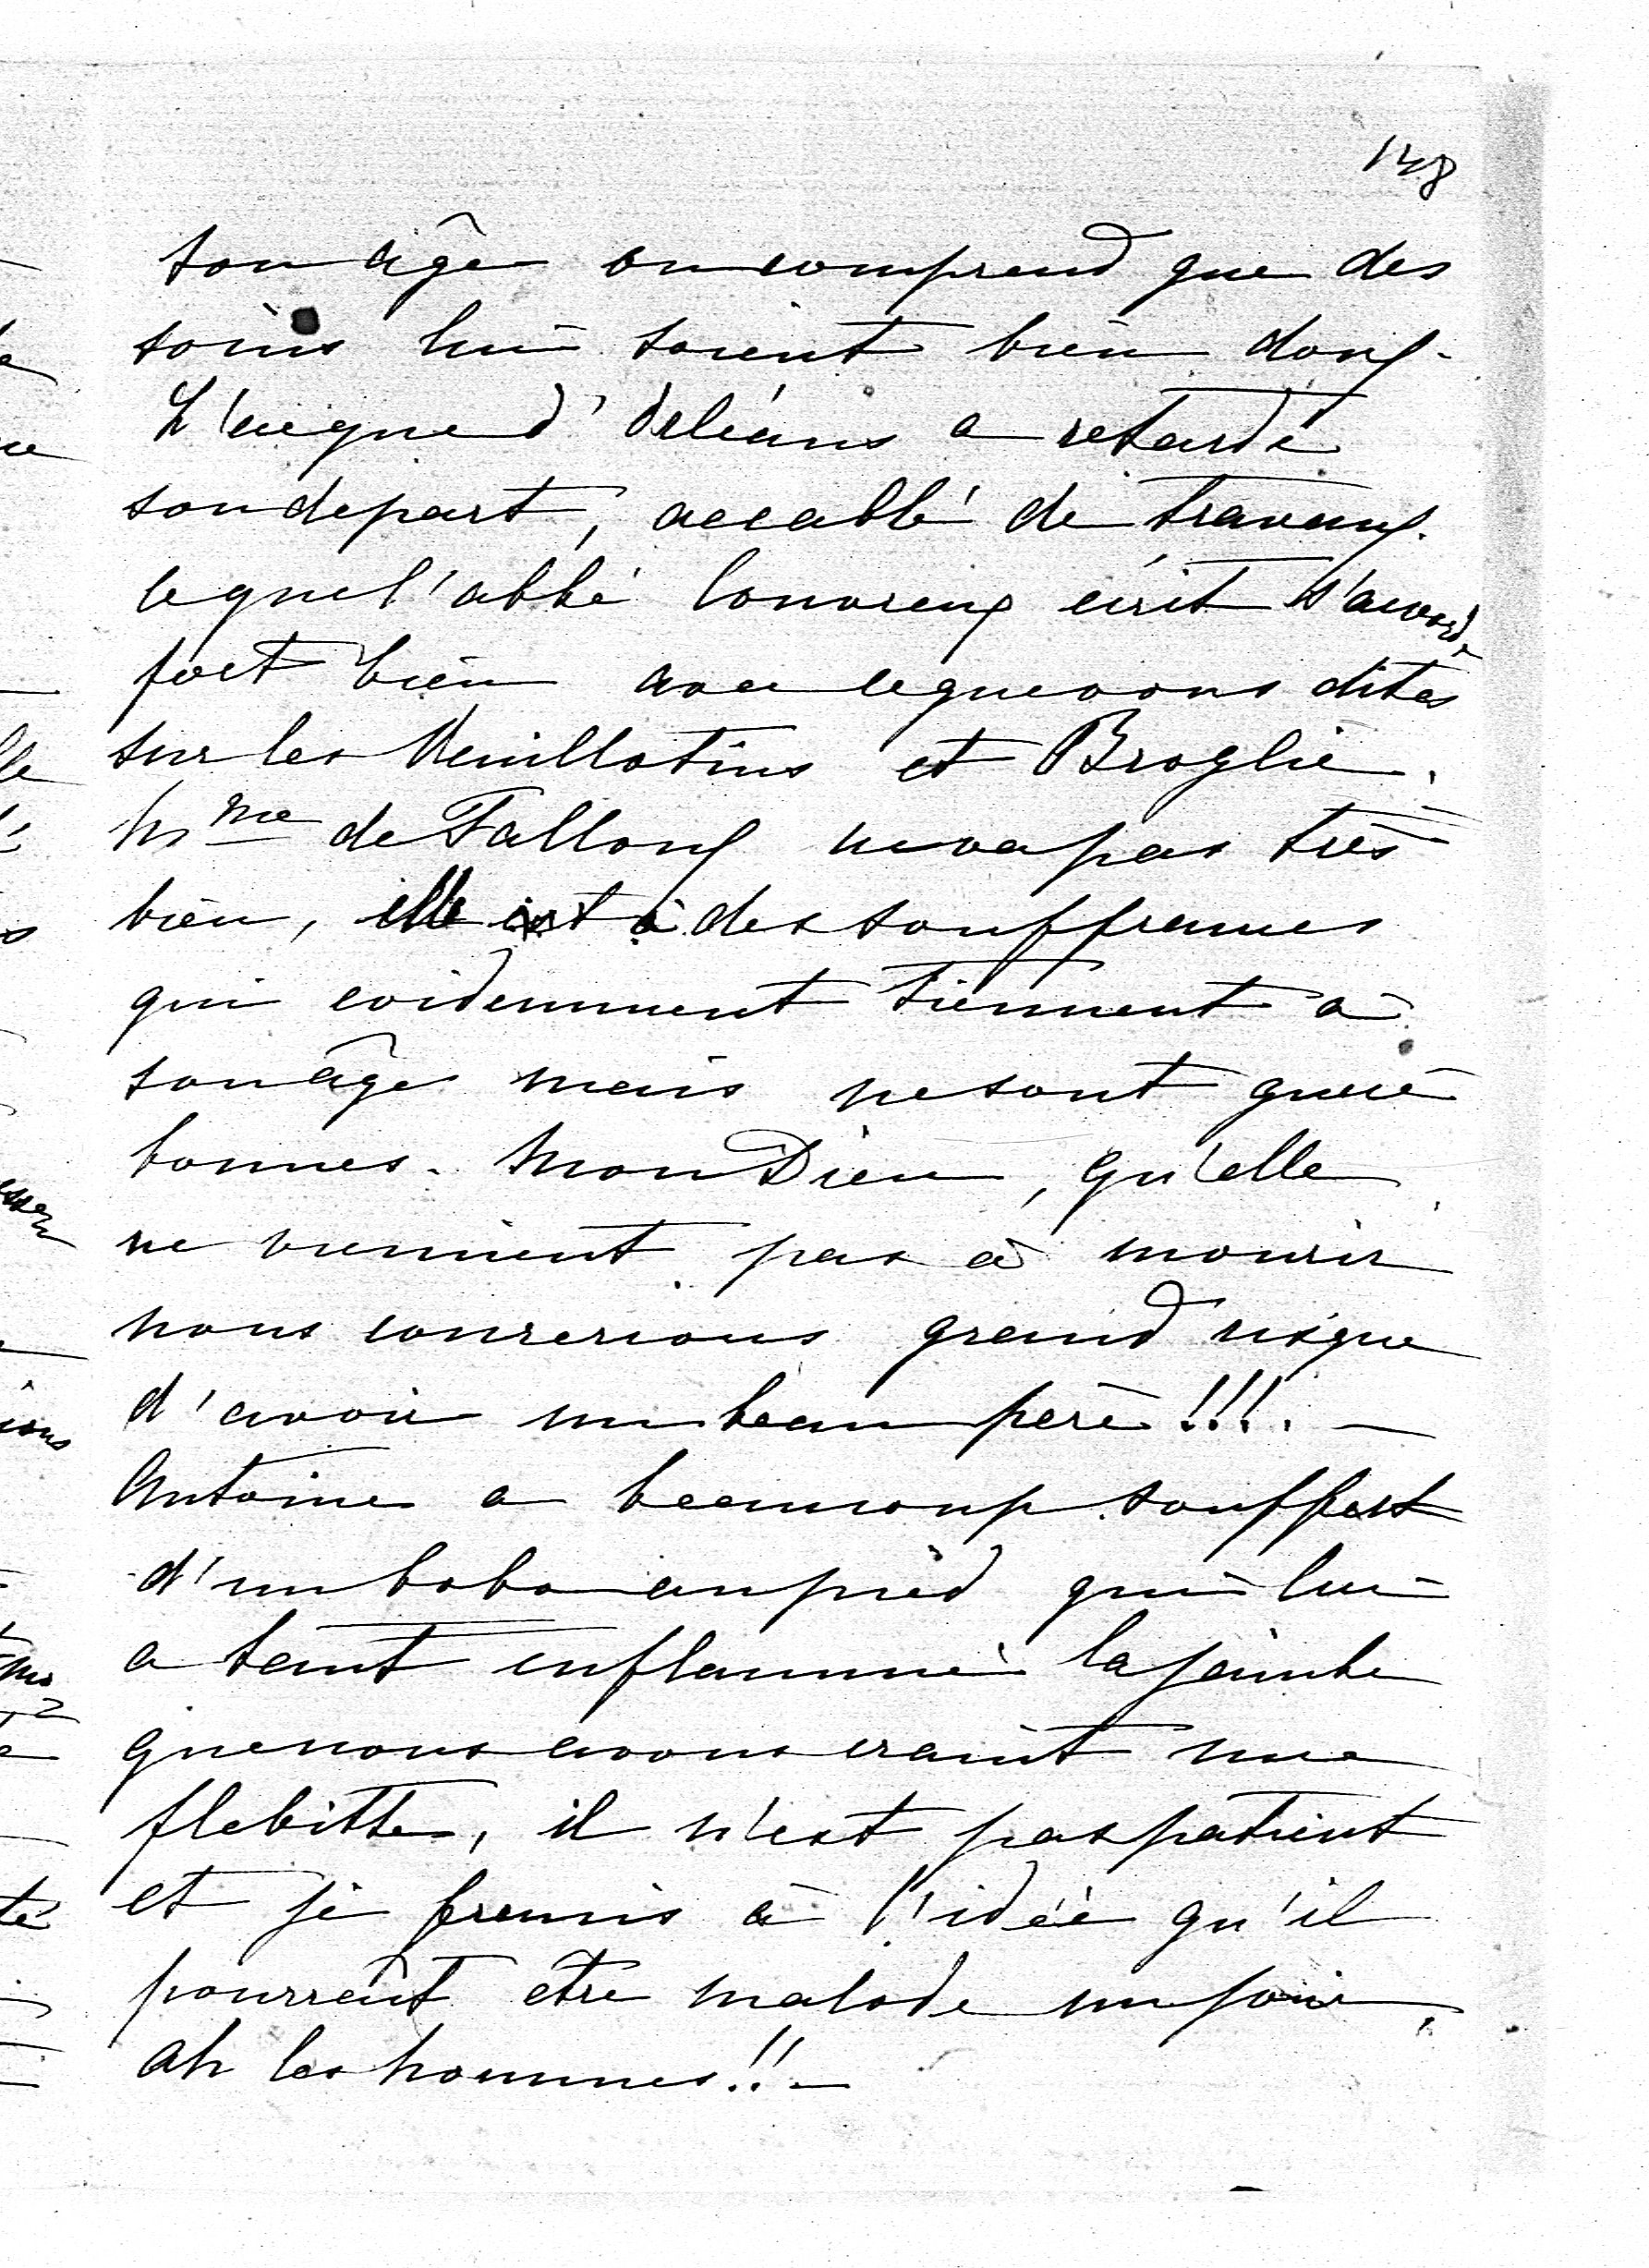 148
son âge on comprend que des
soins lui soient bien doux.
L'évêque d'Orléans a retardé
son depart, accablé de travaux.
ce que l'abbé Couvreux écrit s'accorde
fort bien avec ce que vous dites
sur les Veuillotins et Broglie.
Mme de Falloux ne va pas très
bien, elle à des souffrances
qui evidemment tiennent à
son âge mais ne sont guère
bonnes. Mon Dieu, qu'elle
ne viennent pas à mourir
nous courrerions grand risque
d'avoir un beau père !!!. —
Antoine a beaucoup souffert
d'un bobo au pied qui lui
a tant inflammé la jambe
que nous avons craint une
flebitte, il n'est pas patient
et je fremis à l'idée qu'il
pourrait etre malade un jour.
ah les hommes !! —